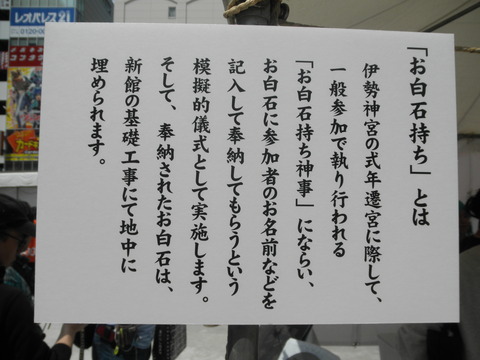 「お白石持ち」とは
伊勢神宮の式年遷宮に際して、
一般参加で執り行われる
「お白石持ち神事」にならい、
お白石に参加者のお名前などを
記入して奉納してもらうという
模擬的儀式として実施します。
そして、奉納されたお白石は、
新館の基礎工事にて地中に
埋められます。
レオパレス21